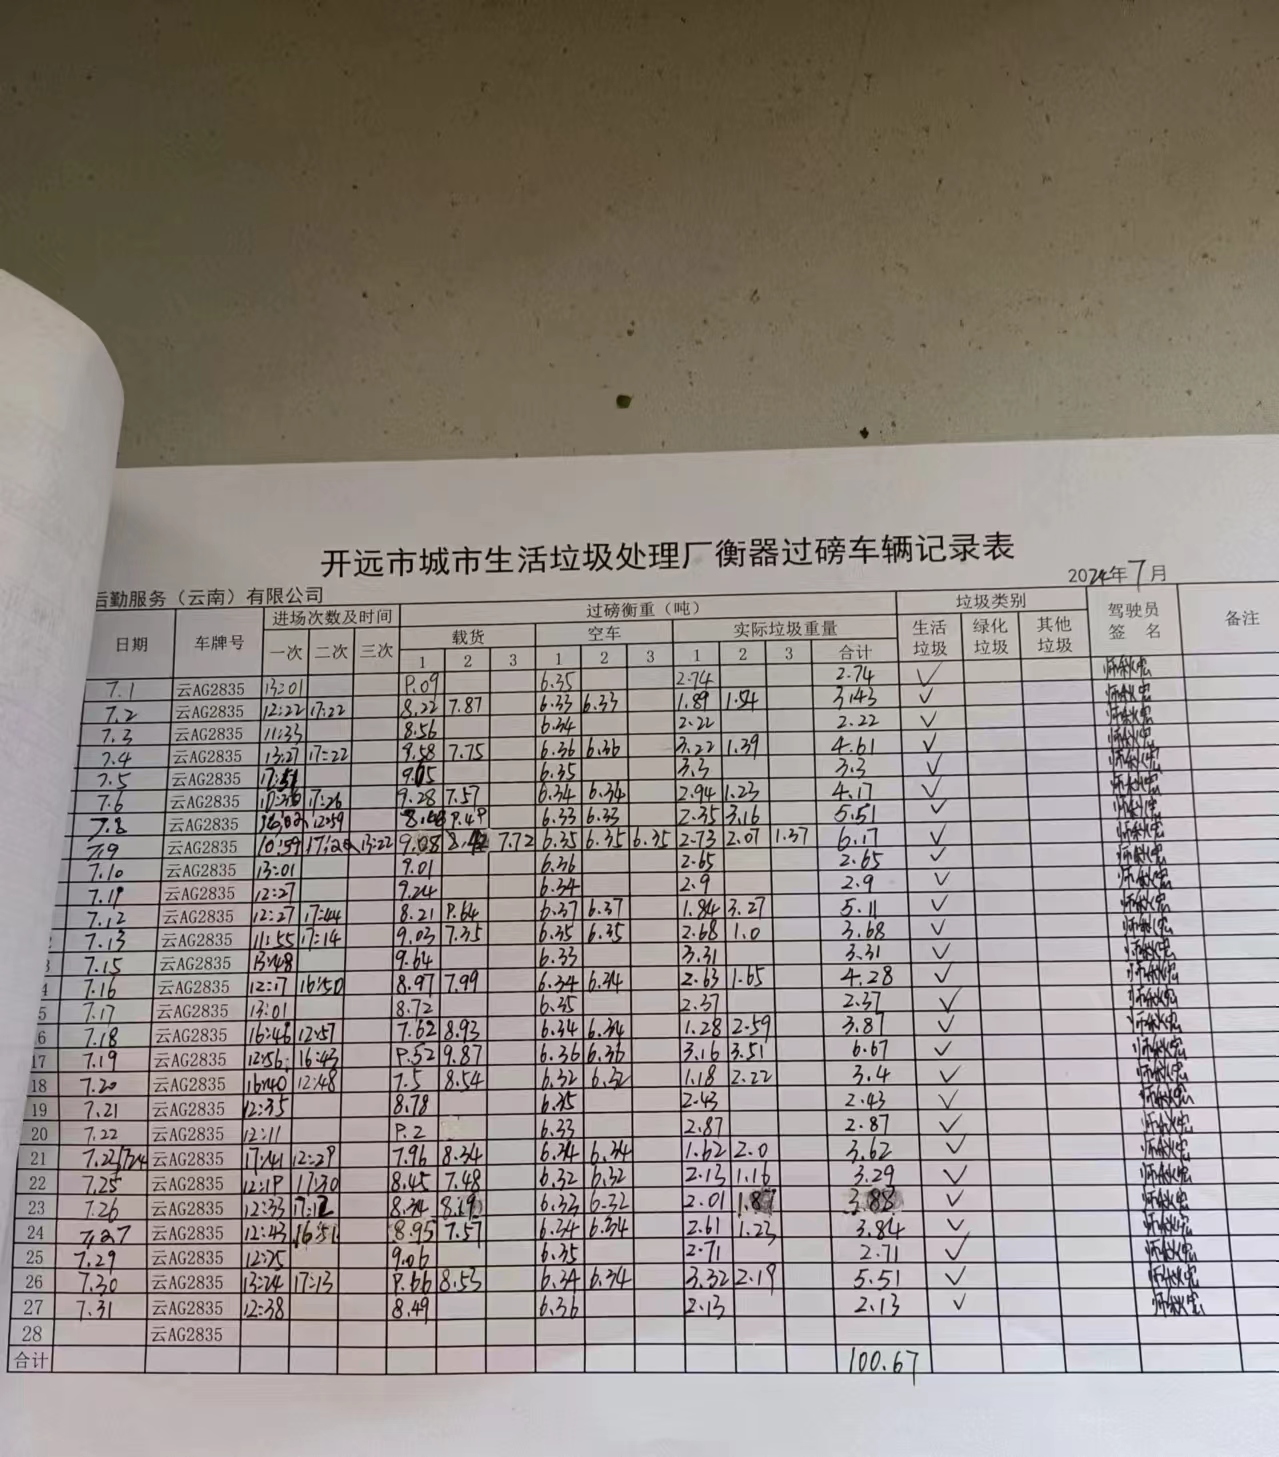 开远市城市生活垃圾处理厂衡器过磅车辆记录表
后勤服务（云南）有限公司 2024年7月
日期 车牌号 进场次数及时间 过磅衡重（吨） 垃圾类别 驾驶员签名 备注
一次 二次 三次 载货 空车 实际垃圾重量 生活垃圾 绿化垃圾 其他垃圾
1 2 3 1 2 3 1 2 3 合计
7.1 云AG2835 13:01 9.09 6.35 2.74 2.74 ✓
7.2 云AG2835 12:22 17:22 8.22 7.87 6.33 6.33 1.89 1.54 3.43 ✓
7.3 云AG2835 11:33 8.56 6.34 2.22 2.22 ✓
7.4 云AG2835 13:27 17:22 9.58 7.75 6.36 6.36 3.22 1.39 4.61 ✓
7.5 云AG2835 9.65 6.35 3.3 3.3 ✓
7.6 云AG2835 17:26 9.28 7.57 6.34 6.34 2.94 1.23 4.17 ✓
7.8 云AG2835 12:59 9.49 6.33 6.33 2.35 3.16 5.51 ✓
7.9 云AG2835 10:59 13:22 9.08 8.42 7.72 6.35 6.35 6.35 2.73 2.07 1.37 6.17 ✓
7.10 云AG2835 13:01 9.01 6.36 2.65 2.65 ✓
7.11 云AG2835 12:27 9.24 6.34 2.9 2.9 ✓
7.12 云AG2835 12:27 17:44 8.21 9.64 6.37 6.37 1.84 3.27 5.11 ✓
7.13 云AG2835 11:55 17:14 9.03 7.35 6.35 6.35 2.68 1.0 3.68 ✓
7.15 云AG2835 13:48 9.64 6.33 3.31 3.31 ✓
7.16 云AG2835 12:17 16:50 8.97 7.99 6.34 6.34 2.63 1.65 4.28 ✓
7.17 云AG2835 13:01 8.72 6.35 2.37 2.37 ✓
7.18 云AG2835 16:46 12:57 7.62 8.93 6.34 6.34 1.28 2.59 3.87 ✓
17 7.19 云AG2835 12:56 16:43 9.52 9.87 6.36 6.36 3.16 3.51 6.67 ✓
18 7.20 云AG2835 16:40 12:48 7.5 8.54 6.32 6.32 1.18 2.22 3.4 ✓
19 7.21 云AG2835 12:35 8.78 6.35 2.43 2.43 ✓
20 7.22 云AG2835 12:11 9.2 6.33 2.87 2.87 ✓
21 7.22/7.24 云AG2835 17:41 12:29 7.96 8.34 6.34 6.34 1.62 2.0 3.62 ✓
22 7.25 云AG2835 12:19 17:30 8.45 7.48 6.32 6.32 2.13 1.16 3.29 ✓
23 7.26 云AG2835 12:33 17:12 8.34 8.19 6.33 6.32 2.01 1.87 3.88 ✓
24 7.27 云AG2835 12:43 16:51 8.95 7.57 6.34 6.34 2.61 1.23 3.84 ✓
25 7.29 云AG2835 12:25 9.06 6.35 2.71 2.71 ✓
26 7.30 云AG2835 13:24 17:13 9.66 8.53 6.34 6.34 3.32 2.19 5.51 ✓
27 7.31 云AG2835 12:38 8.49 6.36 2.13 2.13 ✓
28 云AG2835
合计 100.67